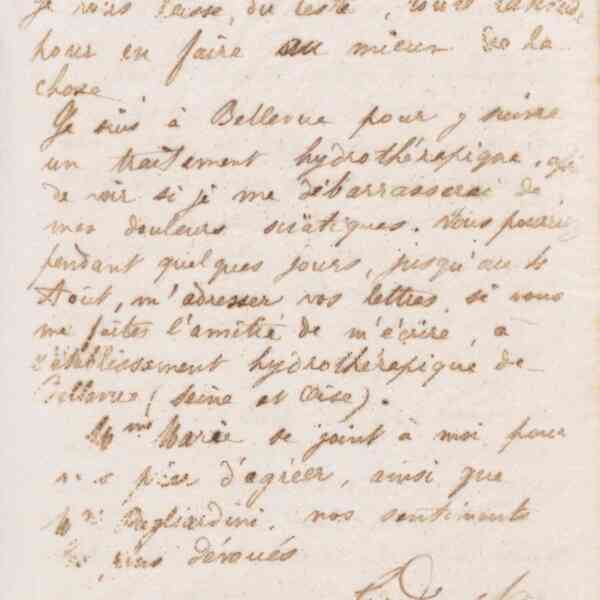 je vous laisse, du reste, toute latitude
pour en faire au mieux de la
chose
Je suis à Bellevue pour y suivre
un traitement hydrothérapique, afin
de voir si je me débarrasserai de
mes douleurs sciatiques. Vous pouvez
pendant quelques jours, jusqu'au
Août, m'adresser vos lettres, si vous
me faites l'amitié de m'écrire, à
l'établissement hydrothérapique de
Bellevue (Seine et Oise).
Mme Marie se joint à moi pour
vous prier d'agréer, ainsi que
Pagliardini, nos sentiments
dévoués